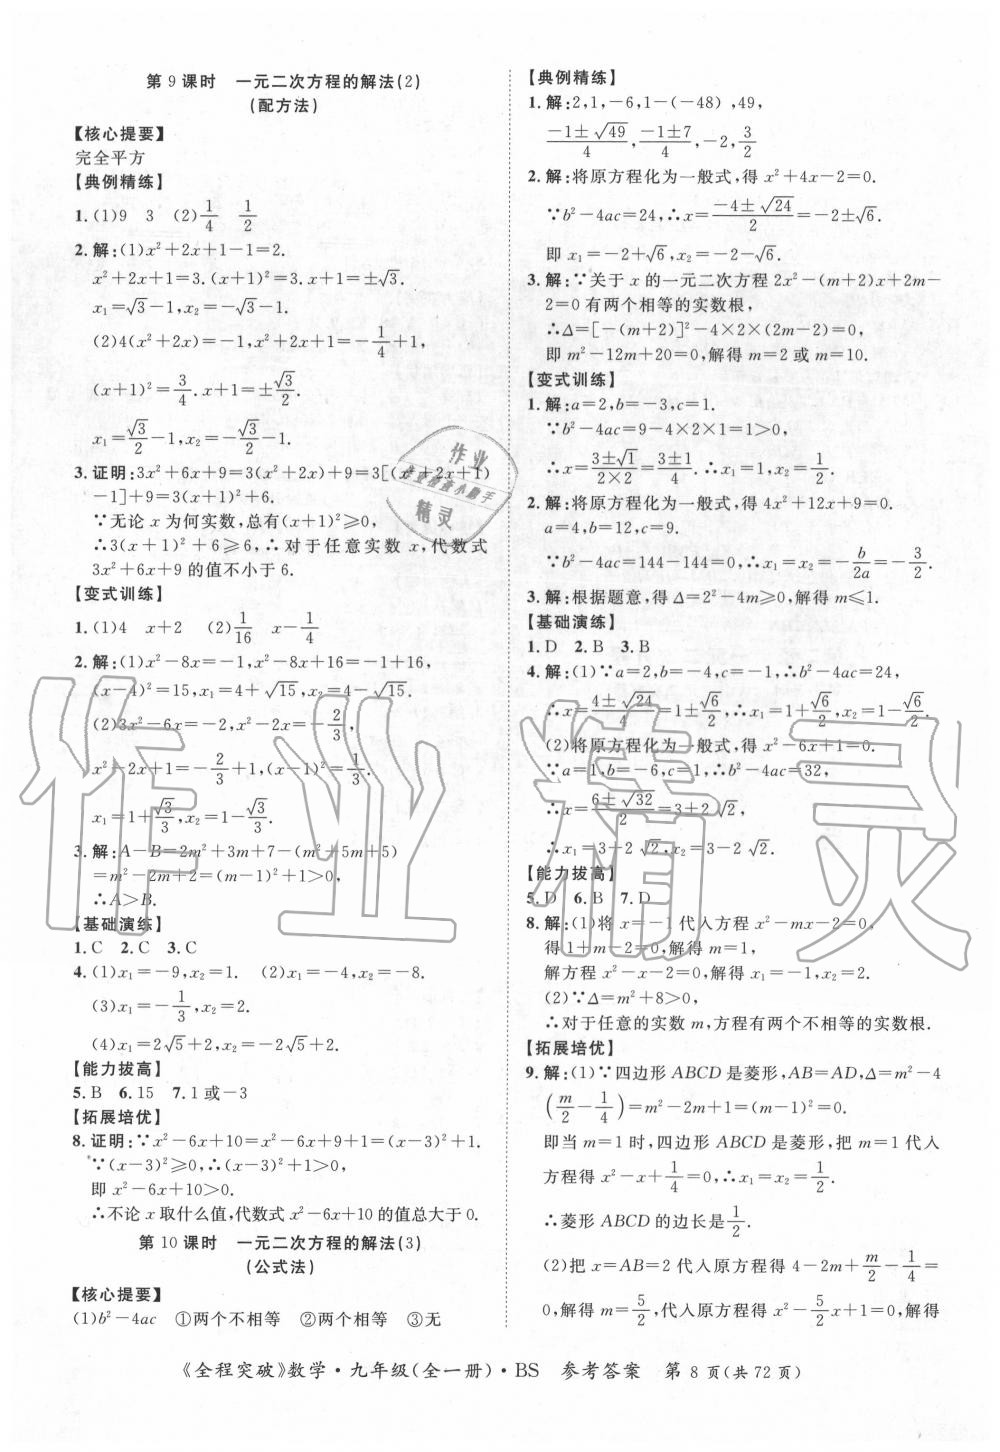 第9课时　一元二次方程的解法(2)
(配方法)
【核心提要】
完全平方
【典例精练】
1.(1)9　3　(2)1/4　1/2
2.解:(1)x²+2x+1-1=2.
x²+2x+1=3.(x+1)²=3,x+1=±√3.
x₁=√3-1,x₂=-√3-1.
(2)4(x²+2x)=-1,x²+2x+1=-1/4+1,
(x+1)²=3/4.x+1=±√3/2.
x₁=√3/2-1,x₂=-√3/2-1.
3.证明:3x²+6x+9=3(x²+2x)+9=3[(x²+2x+1)
-1]+9=3(x+1)²+6.
∵无论x为何实数,总有(x+1)²≥0,
∴3(x+1)²+6≥6,∴对于任意实数x,代数式
3x²+6x+9的值不小于6.
【变式训练】
1.(1)4　x+2　(2)1/16　x-1/4
2.解:(1)x²-8x=-1,x²-8x+16=-1+16,
(x-4)²=15,x₁=4+√15,x₂=4-√15.
(2)3x²-6x=-2,x²-2x=-2/3,
x²-2x+1=-2/3+1,(x-1)²=1/3.
x₁=1+√3/3,x₂=1-√3/3.
3.解:A-B=2m²+3m+7-(m²+5m+5)
=m²-2m+2=(m-1)²+1>0,
∴A>B.
【基础演练】
1.C　2.C　3.C
4.(1)x₁=-9,x₂=1.　(2)x₁=-4,x₂=-8.
(3)x₁=-1/3,x₂=2.
(4)x₁=2√5+2,x₂=-2√5+2.
【能力拔高】
5.B　6.15　7.1或-3
【拓展培优】
8.证明:∵x²-6x+10=x²-6x+9+1=(x-3)²+1.
∵(x-3)²≥0,∴(x-3)²+1>0,
即x²-6x+10>0.
∴不论x取什么值,代数式x²-6x+10的值总大于0.
第10课时　一元二次方程的解法(3)
(公式法)
【核心提要】
(1)b²-4ac　①两个不相等　②两个相等　③无
【典例精练】
1.解:2,1,-6,1-(-48),49,
(-1±√49)/4,(-1±7)/4,-2,3/2
2.解:将原方程化为一般式,得x²+4x-2=0.
∵b²-4ac=24,∴x=(-4±√24)/2=-2±√6.
即x₁=-2+√6,x₂=-2-√6.
3.解:∵关于x的一元二次方程2x²-(m+2)x+2m-
2=0有两个相等的实数根,
∴Δ=[-(m+2)]²-4×2×(2m-2)=0,
即m²-12m+20=0,解得m=2或m=10.
【变式训练】
1.解:a=2,b=-3,c=1.
∵b²-4ac=9-4×2×1=1>0,
∴x=(3±√1)/(2×2)=(3±1)/4.∴x₁=1,x₂=1/2.
2.解:将原方程化为一般式,得4x²+12x+9=0.
a=4,b=12,c=9.
∵b²-4ac=144-144=0,∴x₁=x₂=-b/2a=-3/2.
3.解:根据题意,得Δ=2²-4m≥0,解得m≤1.
【基础演练】
1.D　2.B　3.B
4.解:(1)∵a=2,b=-4,c=-1,∴b²-4ac=24,
∴x=(4±√24)/4=1±√6/2,∴x₁=1+√6/2,x₂=1-√6/2.
(2)将原方程化为一般式,得x²-6x+1=0.
∵a=1,b=-6,c=1,∴b²-4ac=32,
∴x=(6±√32)/2=3±2√2,
∴x₁=3+2√2,x₂=3-2√2.
【能力拔高】
5.D　6.B　7.D
8.解:(1)将x=-1代入方程x²-mx-2=0,
得1+m-2=0,解得m=1,
解方程x²-x-2=0,解得x₁=-1,x₂=2.
(2)∵Δ=m²+8>0,
∴对于任意的实数m,方程有两个不相等的实数根.
【拓展培优】
9.解:(1)∵四边形ABCD是菱形,AB=AD,Δ=m²-4
(m/2-1/4)=m²-2m+1=(m-1)²=0,
即当m=1时,四边形ABCD是菱形,把m=1代入
方程得x²-x+1/4=0,∴x₁=x₂=1/2.
∴菱形ABCD的边长是1/2.
(2)把x=AB=2代入原方程得4-2m+m/2-1/4=
0,解得m=5/2,代入原方程得x²-5/2x+1=0,解得
《全程突破》数学·九年级(全一册)·BS　参考答案　第8页(共72页)
作业
精灵
作业精灵